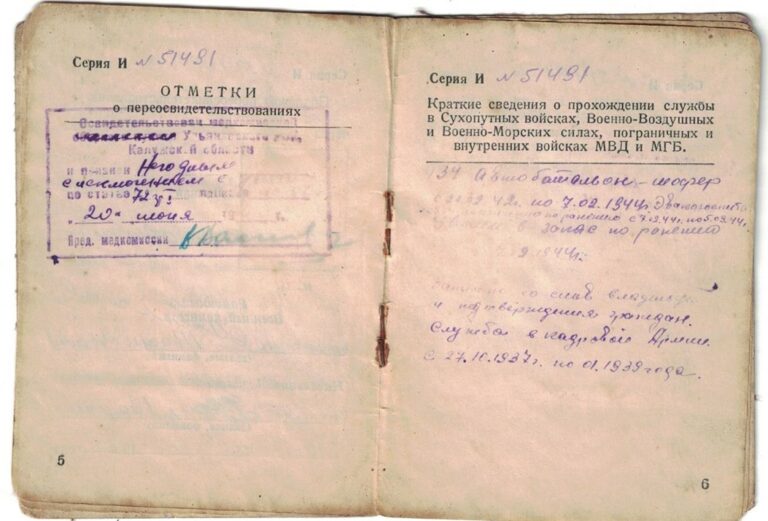 Серия И № 51491
ОТМЕТКИ
о переосвидетельствованиях
Освидетельствован медкомиссией
Ульяновского
Калужской области
и признан Негодным
с исключением с
по статье 72 VI
„20" июля
Пред. медкомиссии
5
Серия И № 51491
Краткие сведения о прохождении службы
в Сухопутных войсках, Военно-Воздушных
и Военно-Морских силах, пограничных и
внутренних войсках МВД и МГБ.
134 Автобатальон - шофер
42г. по 7.02.1944г. Эвакогоспиталь
по ранению с 7.02.44г. по
в запас по ранению
9. 1944г.
Записано со слов владельца
и подтверждения граждан.
Служба в кадровой Армии
с 27.10.1937г. по 01.1939 года.
6